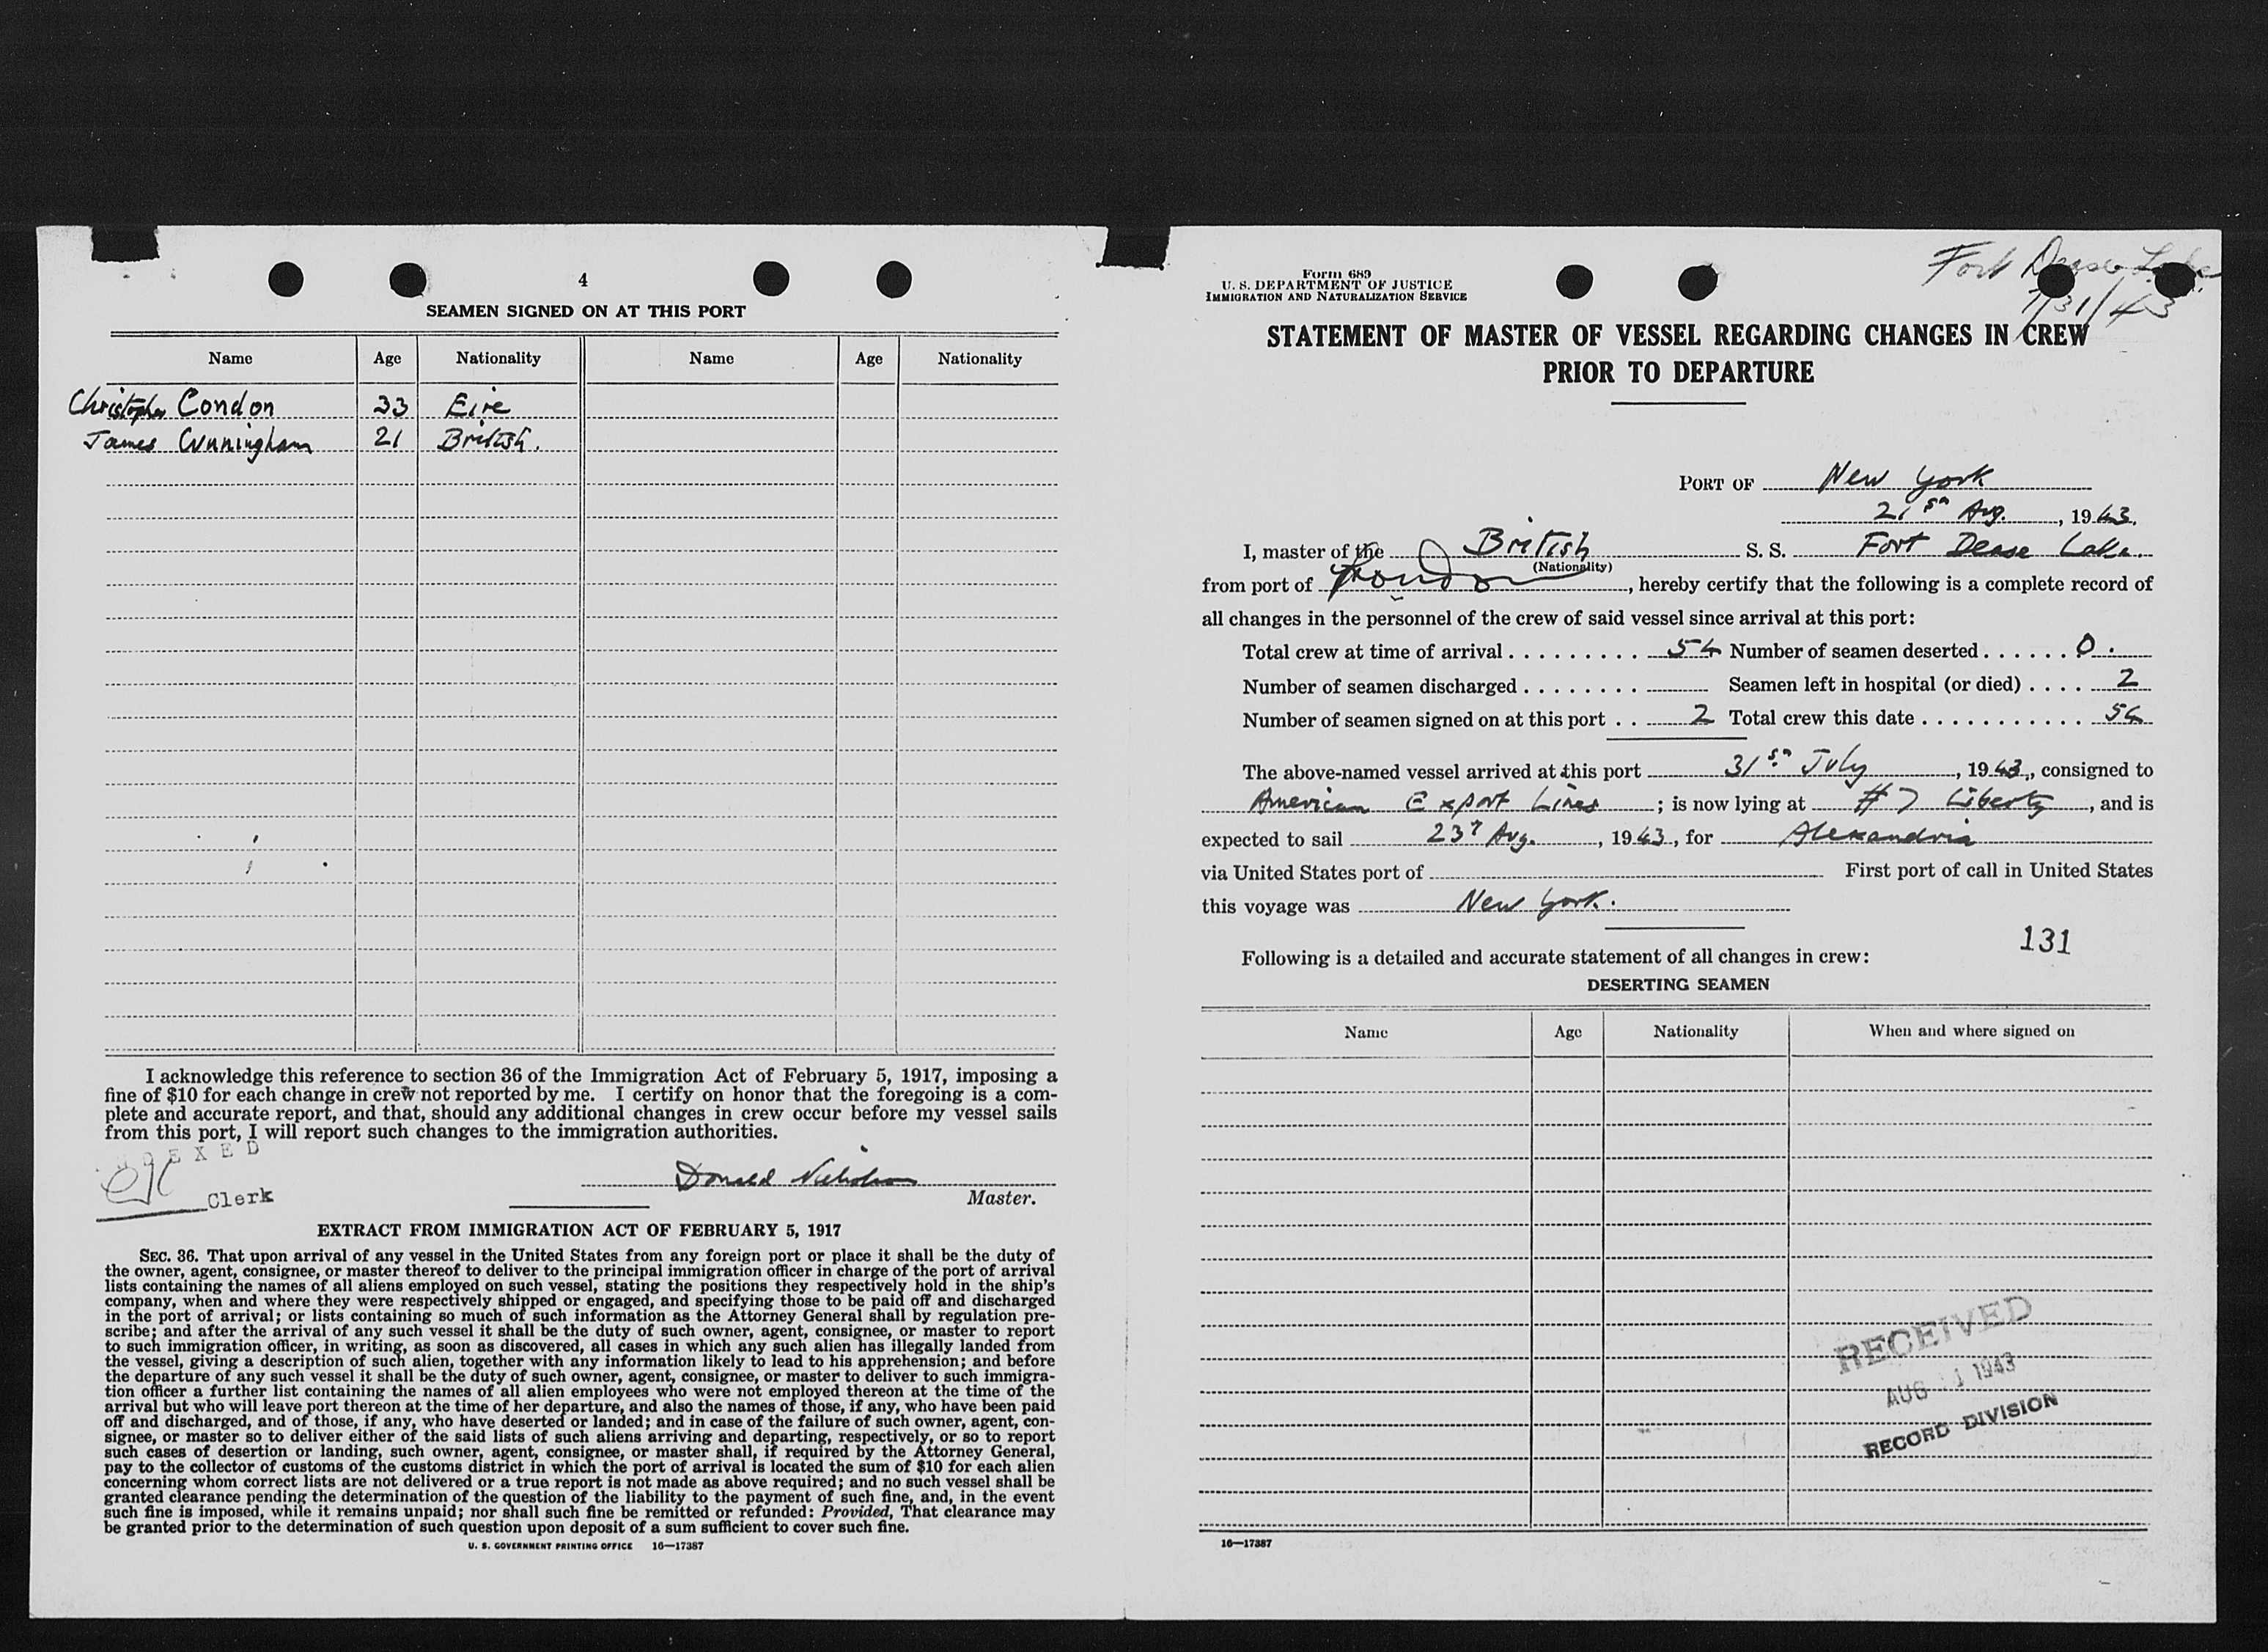 4
SEAMEN SIGNED ON AT THIS PORT
Name Age Nationality Name Age Nationality
Christopher Condon 33 Eire
James Cunningham 21 British.
I acknowledge this reference to section 36 of the Immigration Act of February 5, 1917, imposing a
fine of $10 for each change in crew not reported by me. I certify on honor that the foregoing is a com-
plete and accurate report, and that, should any additional changes in crew occur before my vessel sails
from this port, I will report such changes to the immigration authorities.
Clerk
Donald Nicholson
Master.
EXTRACT FROM IMMIGRATION ACT OF FEBRUARY 5, 1917
SEC. 36. That upon arrival of any vessel in the United States from any foreign port or place it shall be the duty of
the owner, agent, consignee, or master thereof to deliver to the principal immigration officer in charge of the port of arrival
lists containing the names of all aliens employed on such vessel, stating the positions they respectively hold in the ship's
company, when and where they were respectively shipped or engaged, and specifying those to be paid off and discharged
in the port of arrival; or lists containing so much of such information as the Attorney General shall by regulation pre-
scribe; and after the arrival of any such vessel it shall be the duty of such owner, agent, consignee, or master to report
to such immigration officer, in writing, as soon as discovered, all cases in which any such alien has illegally landed from
the vessel, giving a description of such alien, together with any information likely to lead to his apprehension; and before
the departure of any such vessel it shall be the duty of such owner, agent, consignee, or master to deliver to such immigra-
tion officer a further list containing the names of all alien employees who were not employed thereon at the time of the
arrival but who will leave port thereon at the time of her departure, and also the names of those, if any, who have been paid
off and discharged, and of those, if any, who have deserted or landed; and in case of the failure of such owner, agent, con-
signee, or master so to deliver either of the said lists of such aliens arriving and departing, respectively, or so to report
such cases of desertion or landing, such owner, agent, consignee, or master shall, if required by the Attorney General,
pay to the collector of customs of the customs district in which the port of arrival is located the sum of $10 for each alien
concerning whom correct lists are not delivered or a true report is not made as above required; and no such vessel shall be
granted clearance pending the determination of the question of the liability to the payment of such fine, and, in the event
such fine is imposed, while it remains unpaid; nor shall such fine be remitted or refunded: Provided, That clearance may
be granted prior to the determination of such question upon deposit of a sum sufficient to cover such fine.
U. S. GOVERNMENT PRINTING OFFICE 16—17387
Fort Dease Lake
7/31/43
Form 689
U. S. DEPARTMENT OF JUSTICE
IMMIGRATION AND NATURALIZATION SERVICE
STATEMENT OF MASTER OF VESSEL REGARDING CHANGES IN CREW
PRIOR TO DEPARTURE
PORT OF New York
21st Aug., 1943.
I, master of the British S. S. Fort Dease Lake.
(Nationality)
from port of London, hereby certify that the following is a complete record of
all changes in the personnel of the crew of said vessel since arrival at this port:
Total crew at time of arrival . . . . . . . . . . 54 Number of seamen deserted . . . . . . 0.
Number of seamen discharged . . . . . . . . Seamen left in hospital (or died) . . . . 2
Number of seamen signed on at this port . . 2 Total crew this date . . . . . . . . . . . . 54
The above-named vessel arrived at this port 31st July, 1943, consigned to
American Export Lines; is now lying at # 7 Liberty, and is
expected to sail 23rd Aug., 1943, for Alexandria
via United States port of First port of call in United States
this voyage was New York.
131
Following is a detailed and accurate statement of all changes in crew:
DESERTING SEAMEN
Name Age Nationality When and where signed on
RECEIVED
AUG 1 1943
RECORD DIVISION
16—17387